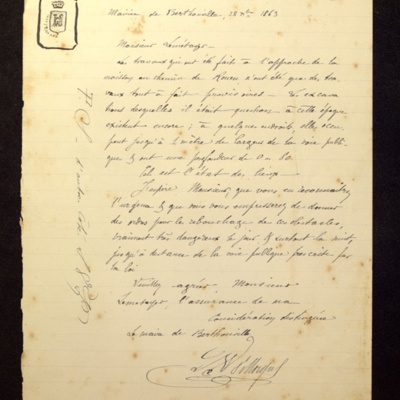 Mairie de Berthouville, 28 1863
Monsieur
Le travail qui ont été fait à l'approche de la
en chemin de Rouen n'ont été que des tra-
vaux tout à fait provisoires. Les excava-
tions desquelles il était question à cette époque
existent encore ; à quelques endroits, elles occu-
pent jusqu'à 1 mètre de largeur de la voie publi-
que & ont une profondeur de 0 m 10.
Tel est l'état des lieux
J'espère Monsieur, que vous en reconnaîtrez
l'urgence & que vous vous empresserez de donner
des ordres pour le rebouchage de ces obstacles,
vraiment très dangereux le jour & surtout la nuit,
jusqu'à distance de la voie publique prescrite par
la loi
Veuillez agréer Monsieur
l'assurance de ma
Considération distinguée
Le maire de Berthouville